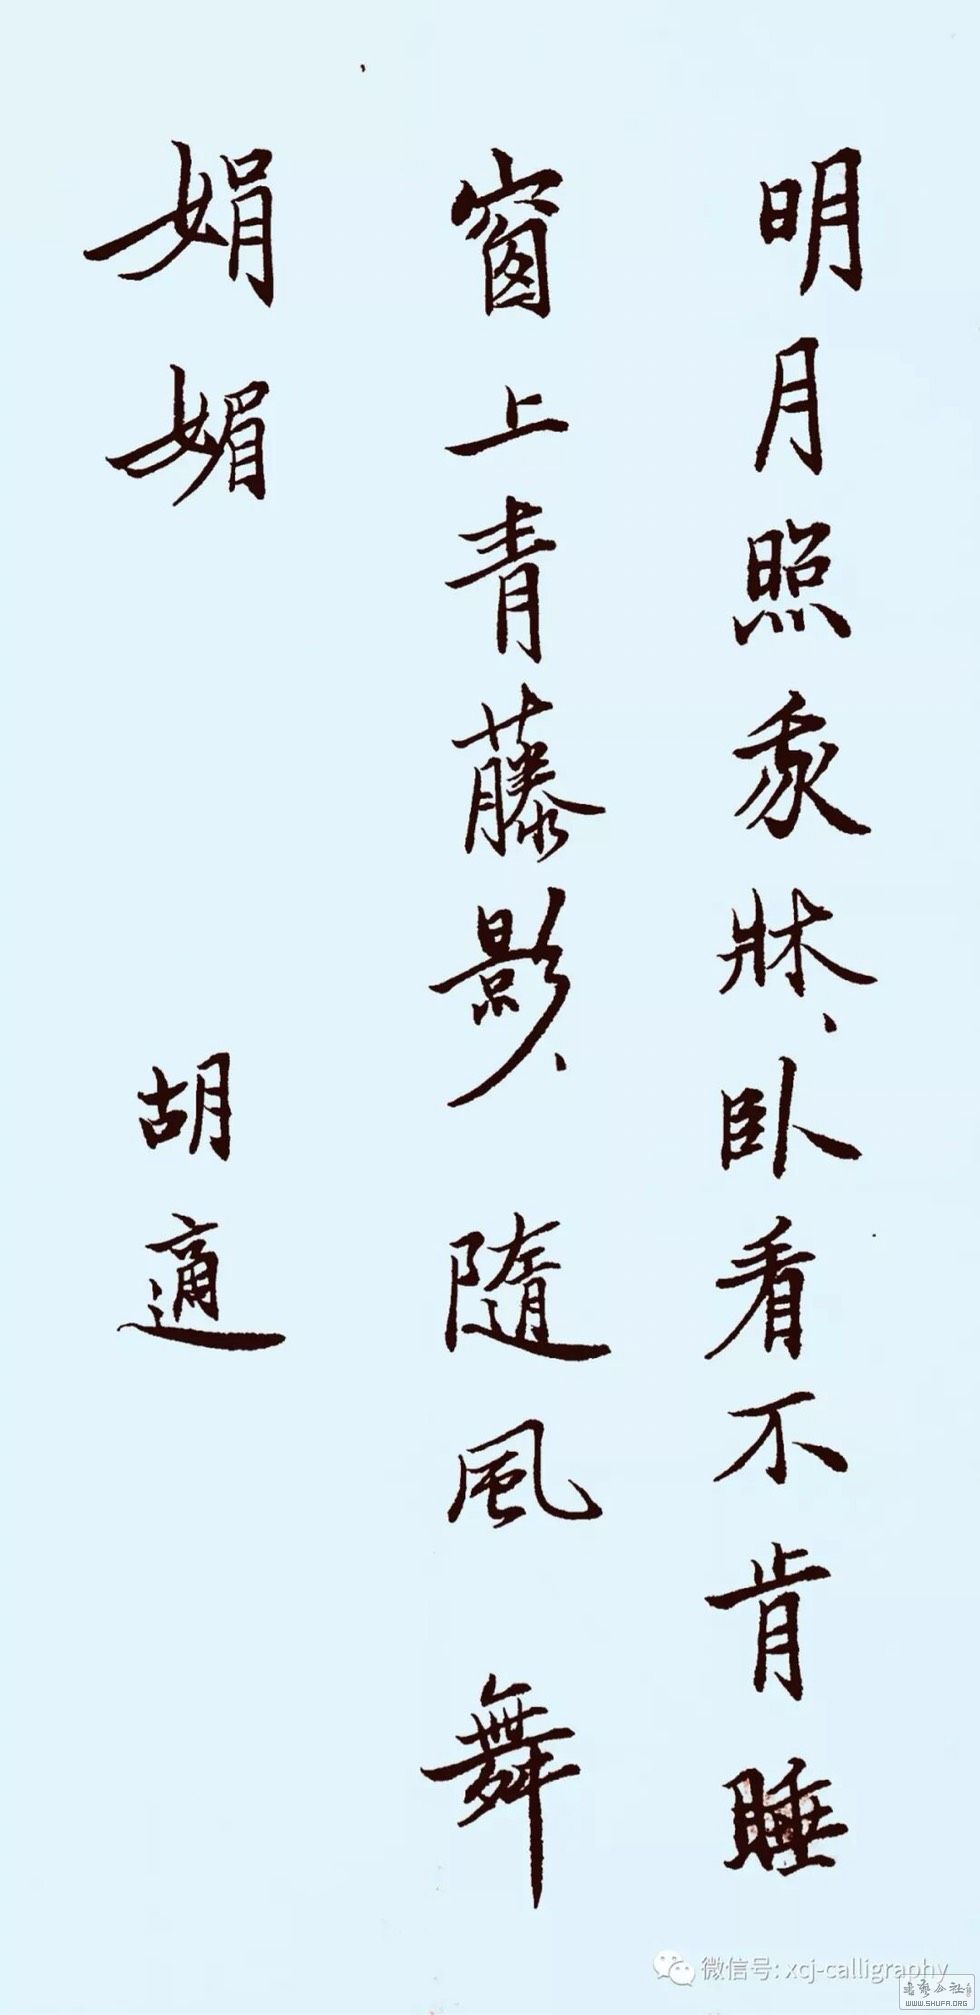 明月照我牀、卧看不肯睡
窗上青藤影、隨風舞
娟媚
胡適
微信号: xcj-calligraphy
WWW.SHUFA.ORG